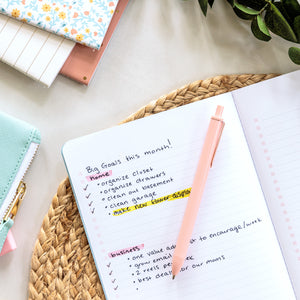 Big Goals this month!
home
✓ • organize closet
✓ • organize drawers
✓ • clean out basement
✓ • clean garage
✓ • make new flower
business
✓ • one value add to encourage/work
✓ • grow email
✓ • 2 reels per
✓ • best deal for our moms